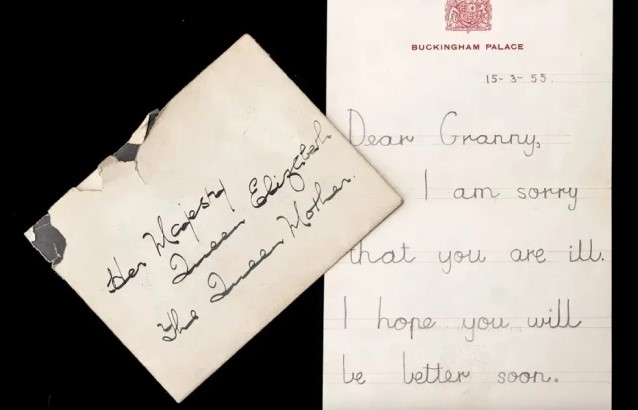 Her Majesty
Queen Elizabeth
The Queen Mother.
BUCKINGHAM PALACE
15-3-55.
Dear Granny,
I am sorry
that you are ill.
I hope you will
be better soon.